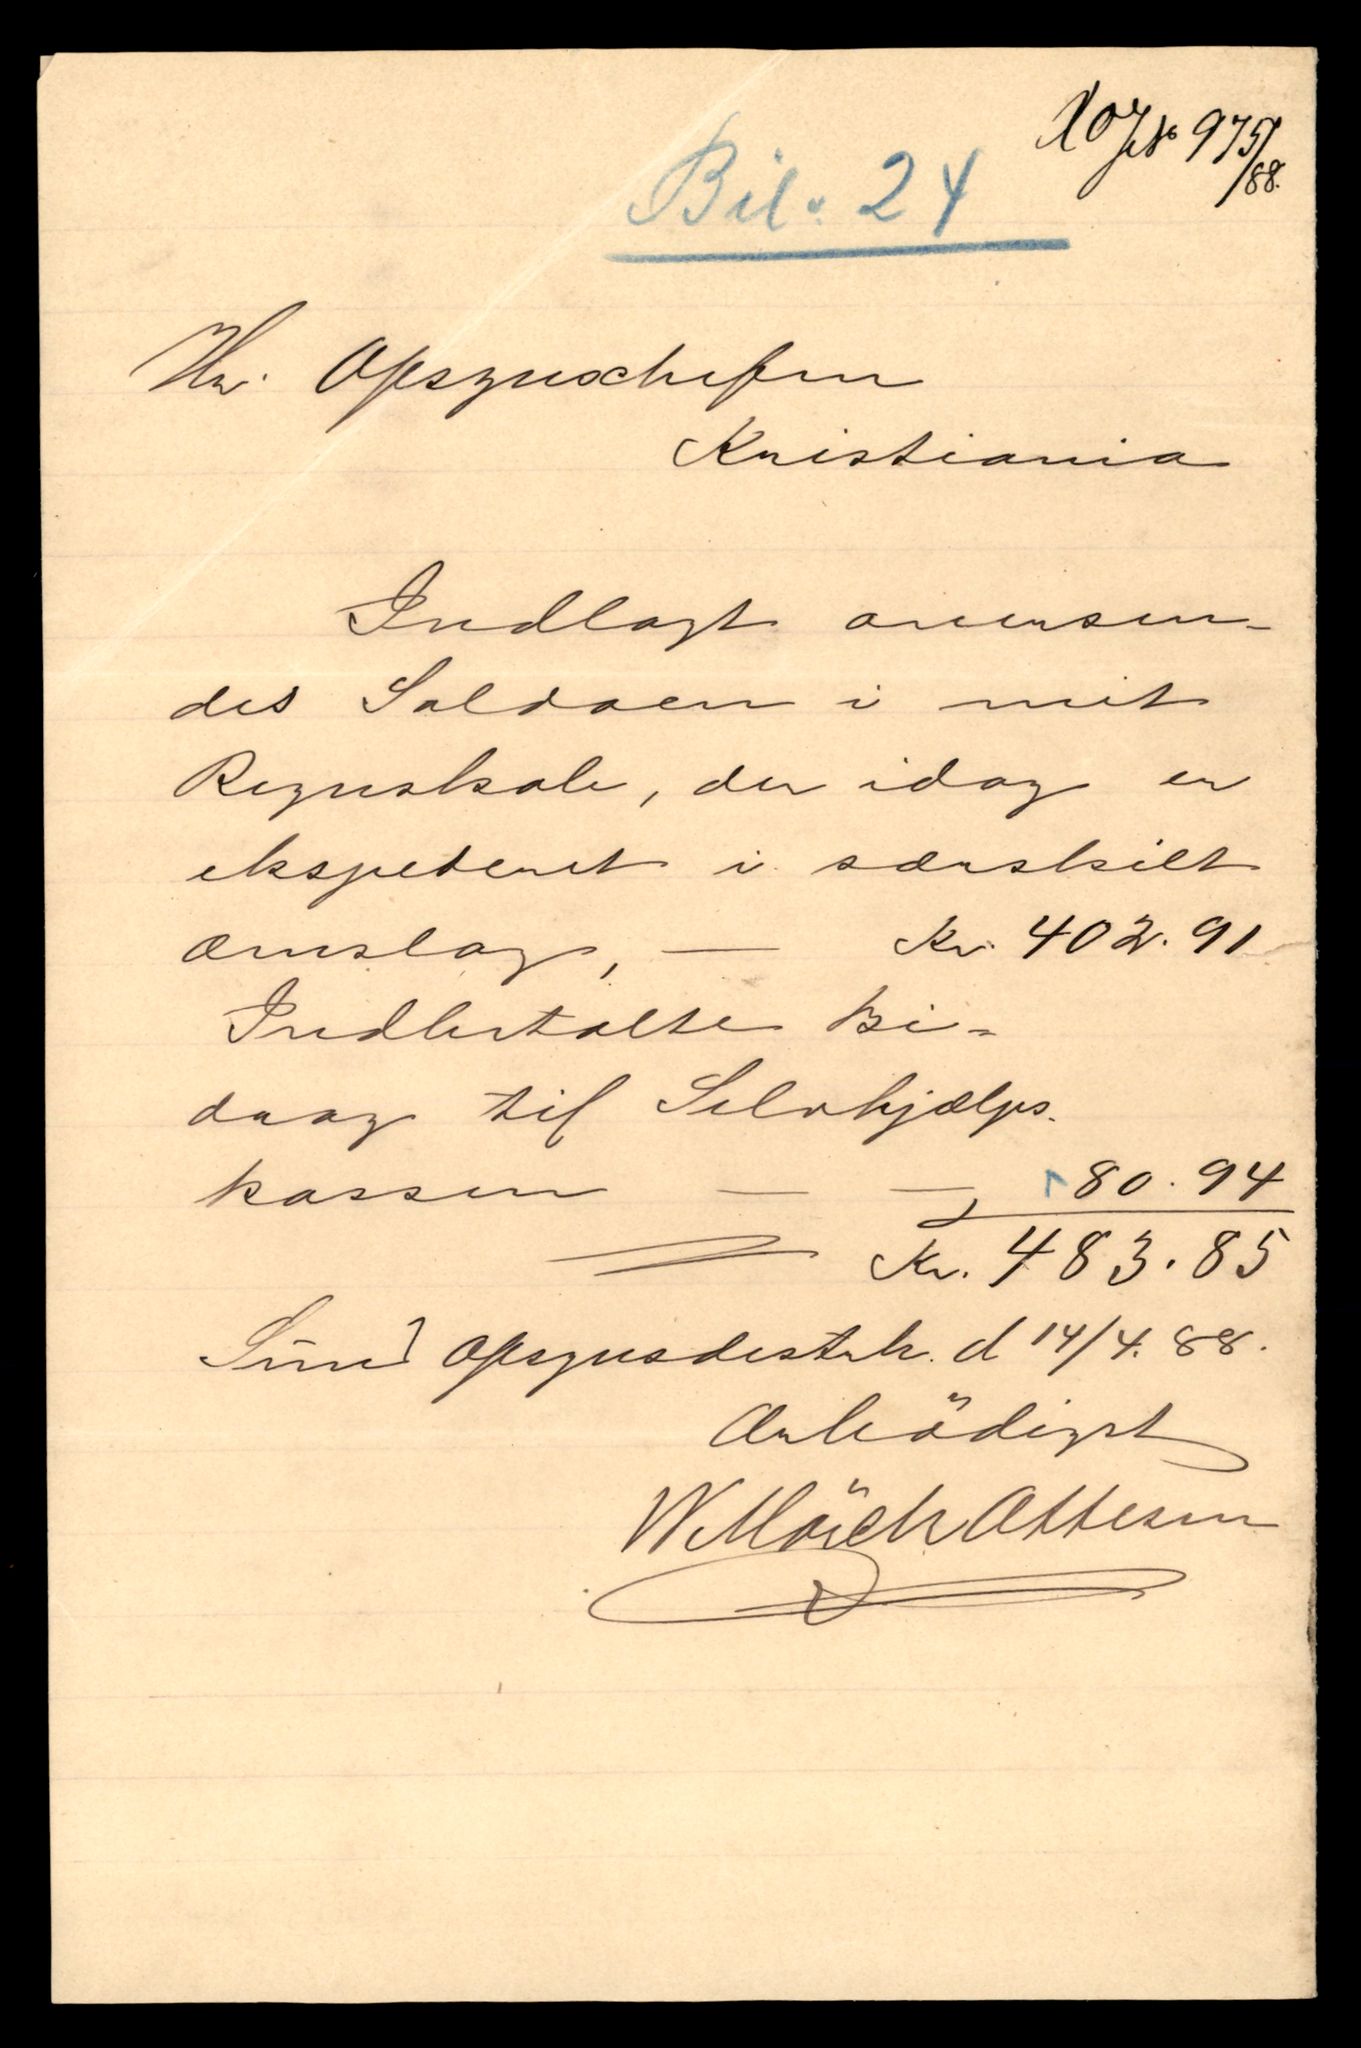 No 975/88.
Bil. 24
Hr. Opsynschefen
Kristiania
Indlagt oversen-
des Saldoen i mit
Regnskab, der idag er
ekspederet i særskilt
Omslag, — Kr. 402.91
Indbetalte Bi-
drag til Selvhjælps-
kassen — — 80.94
Kr. 483.85
Opsynsdistrk. d 14/4. 88.
Ærbödigst
W Mörch Ottesen